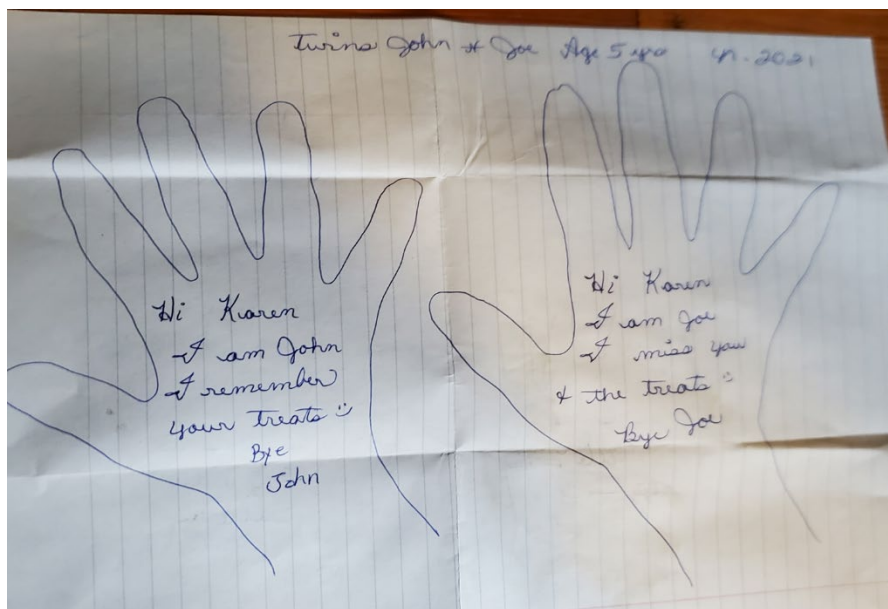 Twins John & Joe Age 5 yrs yr. 2021
Hi Karen
I am John
I remember
your treats :)
Bye
John
Hi Karen
I am Joe
I miss you
& the treats :)
Bye Joe